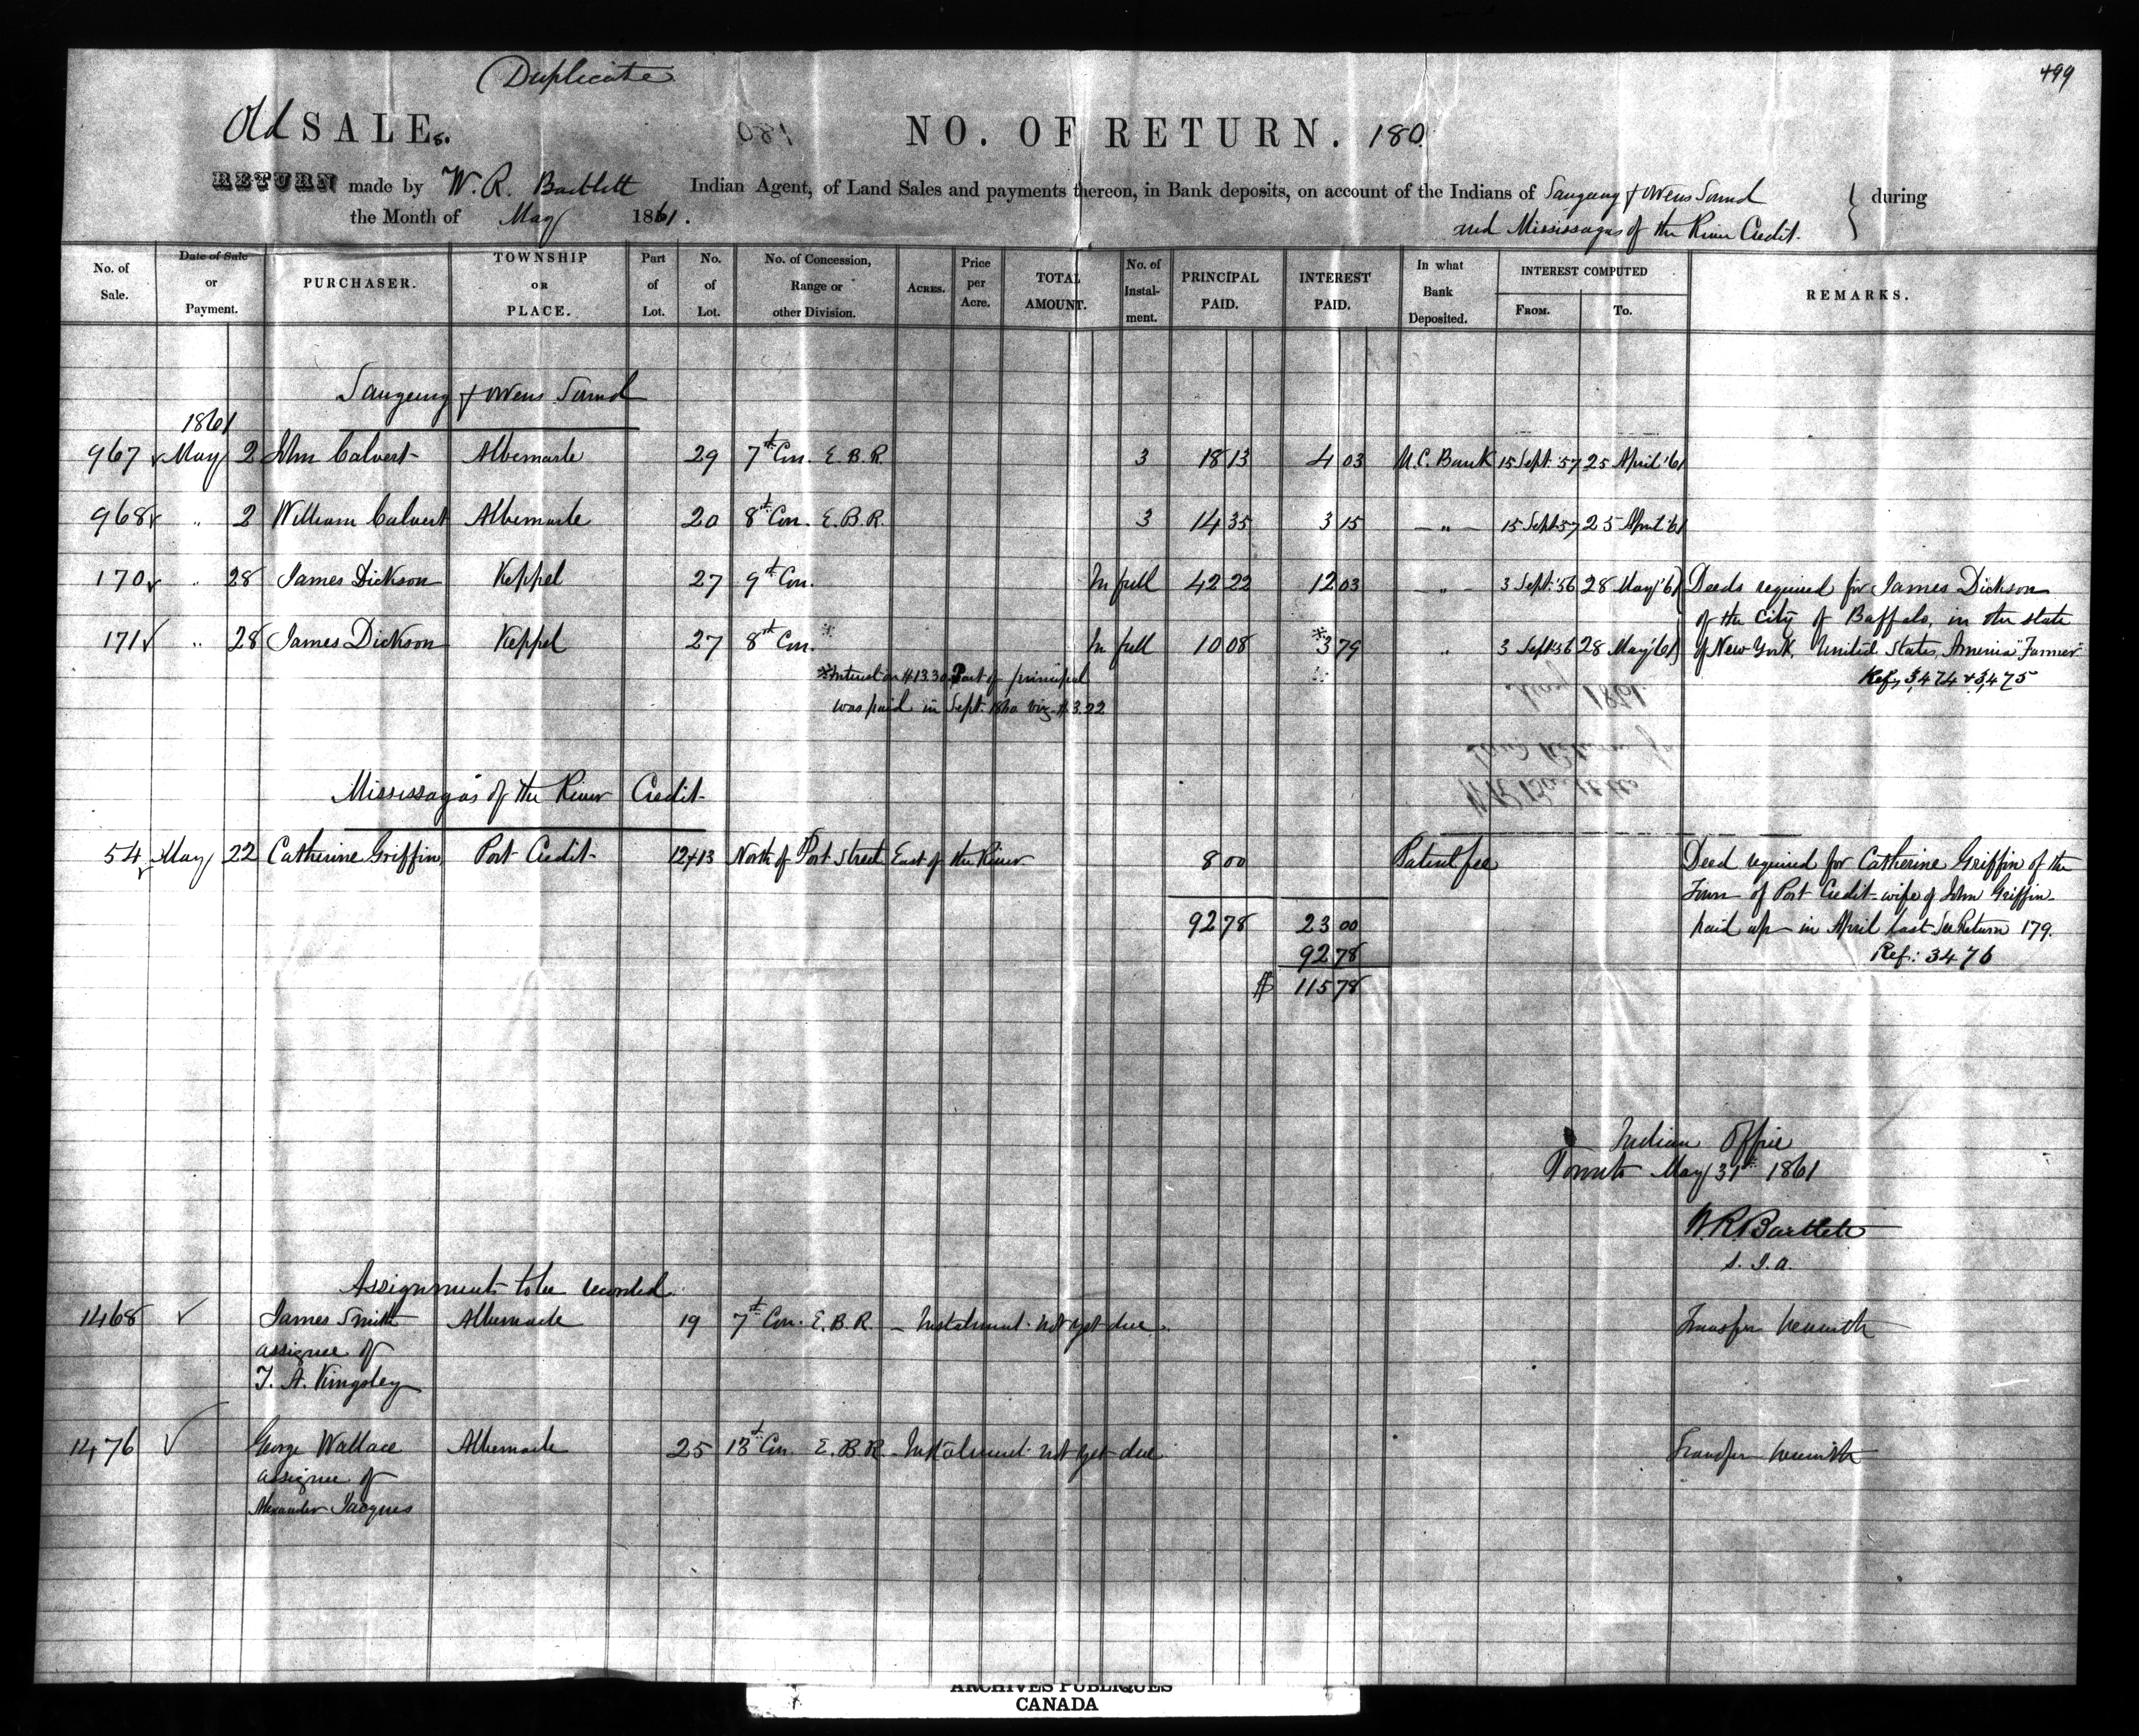 Duplicate
499
Old SALEs. NO. OF RETURN. 180
RETURN made by W. R. Bartlett Indian Agent, of Land Sales and payments thereon, in Bank deposits, on account of the Indians of Saugeeng & Owens Sound } during
the Month of May 1861. and Mississagas of the River Credit.
No. of Sale. Date of Sale or Payment. PURCHASER. TOWNSHIP OR PLACE. Part of Lot. No. of Lot. No. of Concession, Range or other Division. ACRES. Price per Acre. TOTAL AMOUNT. No. of Instalment. PRINCIPAL PAID. INTEREST PAID. In what Bank Deposited. INTEREST COMPUTED FROM. TO. REMARKS.
Saugeeng & Owens Sound
1861
967 May 2 John Calvert Albemarle 29 7th Con. E.B.R. 3 18 13 4 03 U.C. Bank 15 Sept. '57 25 April '61
968 " 2 William Calvert Albemarle 20 8th Con. E.B.R. 3 14 35 3 15 " 15 Sept 57 25 April '61
170 " 28 James Dickson Keppel 27 9th Con. In full 42 22 12 03 " 3 Sept. '56 28 May '61 } Deeds required for James Dickson
of the City of Buffalo, in the state
171 " 28 James Dickson Keppel 27 8th Con. * In full 10 08 * 3 79 " 3 Sept 56 28 May '61 } of New York, United States, America "Farmer"
* Interest on $13.30 Part of principal
Refs 3,474 & 3,475
was paid in Sept. 1860 viz. $3.22
May 1861
W R Bartlett
Mississagas of the River Credit
54 May 22 Catherine Griffin Port Credit 12 & 13 North of Port Street East of the River 8 00 Patent fee Deed required for Catherine Griffin of the
Town of Port Credit wife of John Griffin
92 78 23 00 paid up in April last See Return 179.
92 78 Ref: 3476
$ 115 78
Indian Office
Toronto May 31st 1861
W. R. Bartlett
S. I. A.
Assignments to be recorded
1468 James Smith Albemarle 19 7th Con. E.B.R. - Instalment not yet due. Transfer herewith
assignee of
T. A. Kingsley
1476 George Wallace Albemarle 25 13th Con E.B.R. - Instalment not yet due Transfer herewith
assignee of
Alexander Jacques
ARCHIVES PUBLIQUES
CANADA